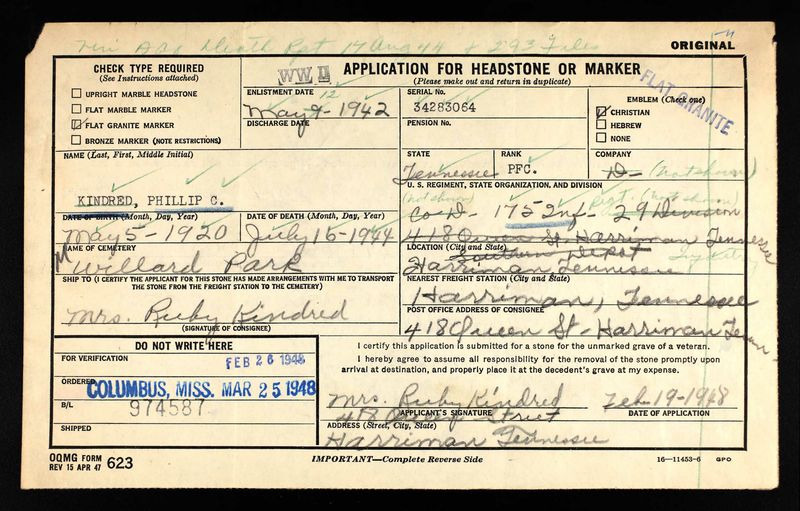 Death Rpt 17 Aug 44 + 293 Files
ORIGINAL
CHECK TYPE REQUIRED
(See Instructions attached)
UPRIGHT MARBLE HEADSTONE
FLAT MARBLE MARKER
FLAT GRANITE MARKER
BRONZE MARKER (NOTE RESTRICTIONS)
WW II
APPLICATION FOR HEADSTONE OR MARKER
(Please make out and return in duplicate)
FLAT GRANITE
ENLISTMENT DATE 12
May 9-1942
DISCHARGE DATE
SERIAL No.
34283064
PENSION No.
EMBLEM (Check one)
CHRISTIAN
HEBREW
NONE
NAME (Last, First, Middle Initial)
KINDRED, PHILLIP C.
STATE
Tennessee
RANK
PFC.
COMPANY
D- (not shown)
U. S. REGIMENT, STATE ORGANIZATION, AND DIVISION
(not shown)
Co D- 175 Inf- 29 Division
DATE OF BIRTH (Month, Day, Year)
May 5-1920
DATE OF DEATH (Month, Day, Year)
July 15-1944
418 Queen St. Harriman Tennessee
NAME OF CEMETERY
Willard Park
LOCATION (City and State)
Southern Depot
Harriman, Tennessee
SHIP TO (I CERTIFY THE APPLICANT FOR THIS STONE HAS MADE ARRANGEMENTS WITH ME TO TRANSPORT
THE STONE FROM THE FREIGHT STATION TO THE CEMETERY)
Mrs. Ruby Kindred
(SIGNATURE OF CONSIGNEE)
NEAREST FREIGHT STATION (City and State)
Harriman, Tennessee
POST OFFICE ADDRESS OF CONSIGNEE
418 Queen St- Harriman Tenn-
DO NOT WRITE HERE
FOR VERIFICATION
FEB 26 1948
ORDERED
COLUMBUS, MISS. MAR 25 1948
B/L
974587
SHIPPED
I certify this application is submitted for a stone for the unmarked grave of a veteran.
I hereby agree to assume all responsibility for the removal of the stone promptly upon
arrival at destination, and properly place it at the decedent's grave at my expense.
Mrs. Ruby Kindred
Feb-19-1948
APPLICANT'S SIGNATURE
DATE OF APPLICATION
418 Queen Street
ADDRESS (Street, City, State)
Harriman Tennessee
OQMG FORM
REV 15 APR 47 623
IMPORTANT—Complete Reverse Side
16—11453-6 GPO